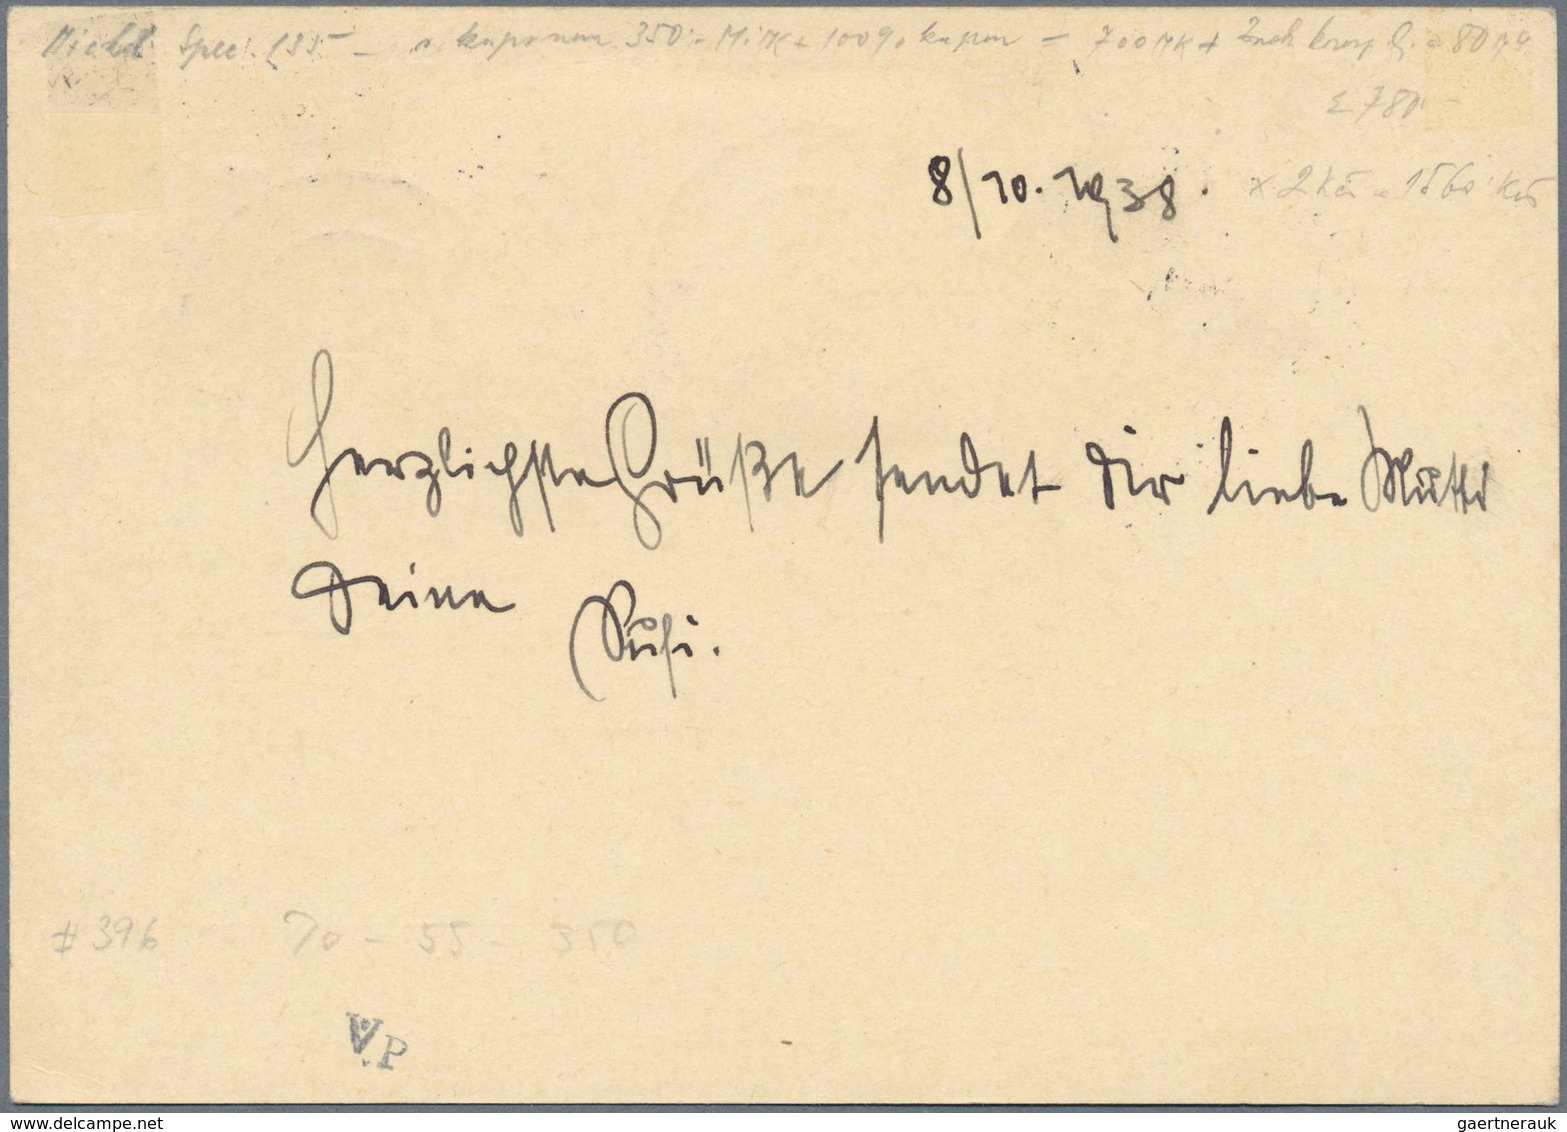 Michel Spec. 155 - s kuponem 350.- M.MK + 100% kupon = 700 MK +
Σ 780 -
8/10. 1938. x 2 Kčs = 1560 Kčs
Herzlichste Grüße sendet Dir liebe Mutti
Deine
Susi.
# 396 70 - 55 - 350
VP
www.delcampe.net
gaertnerauk